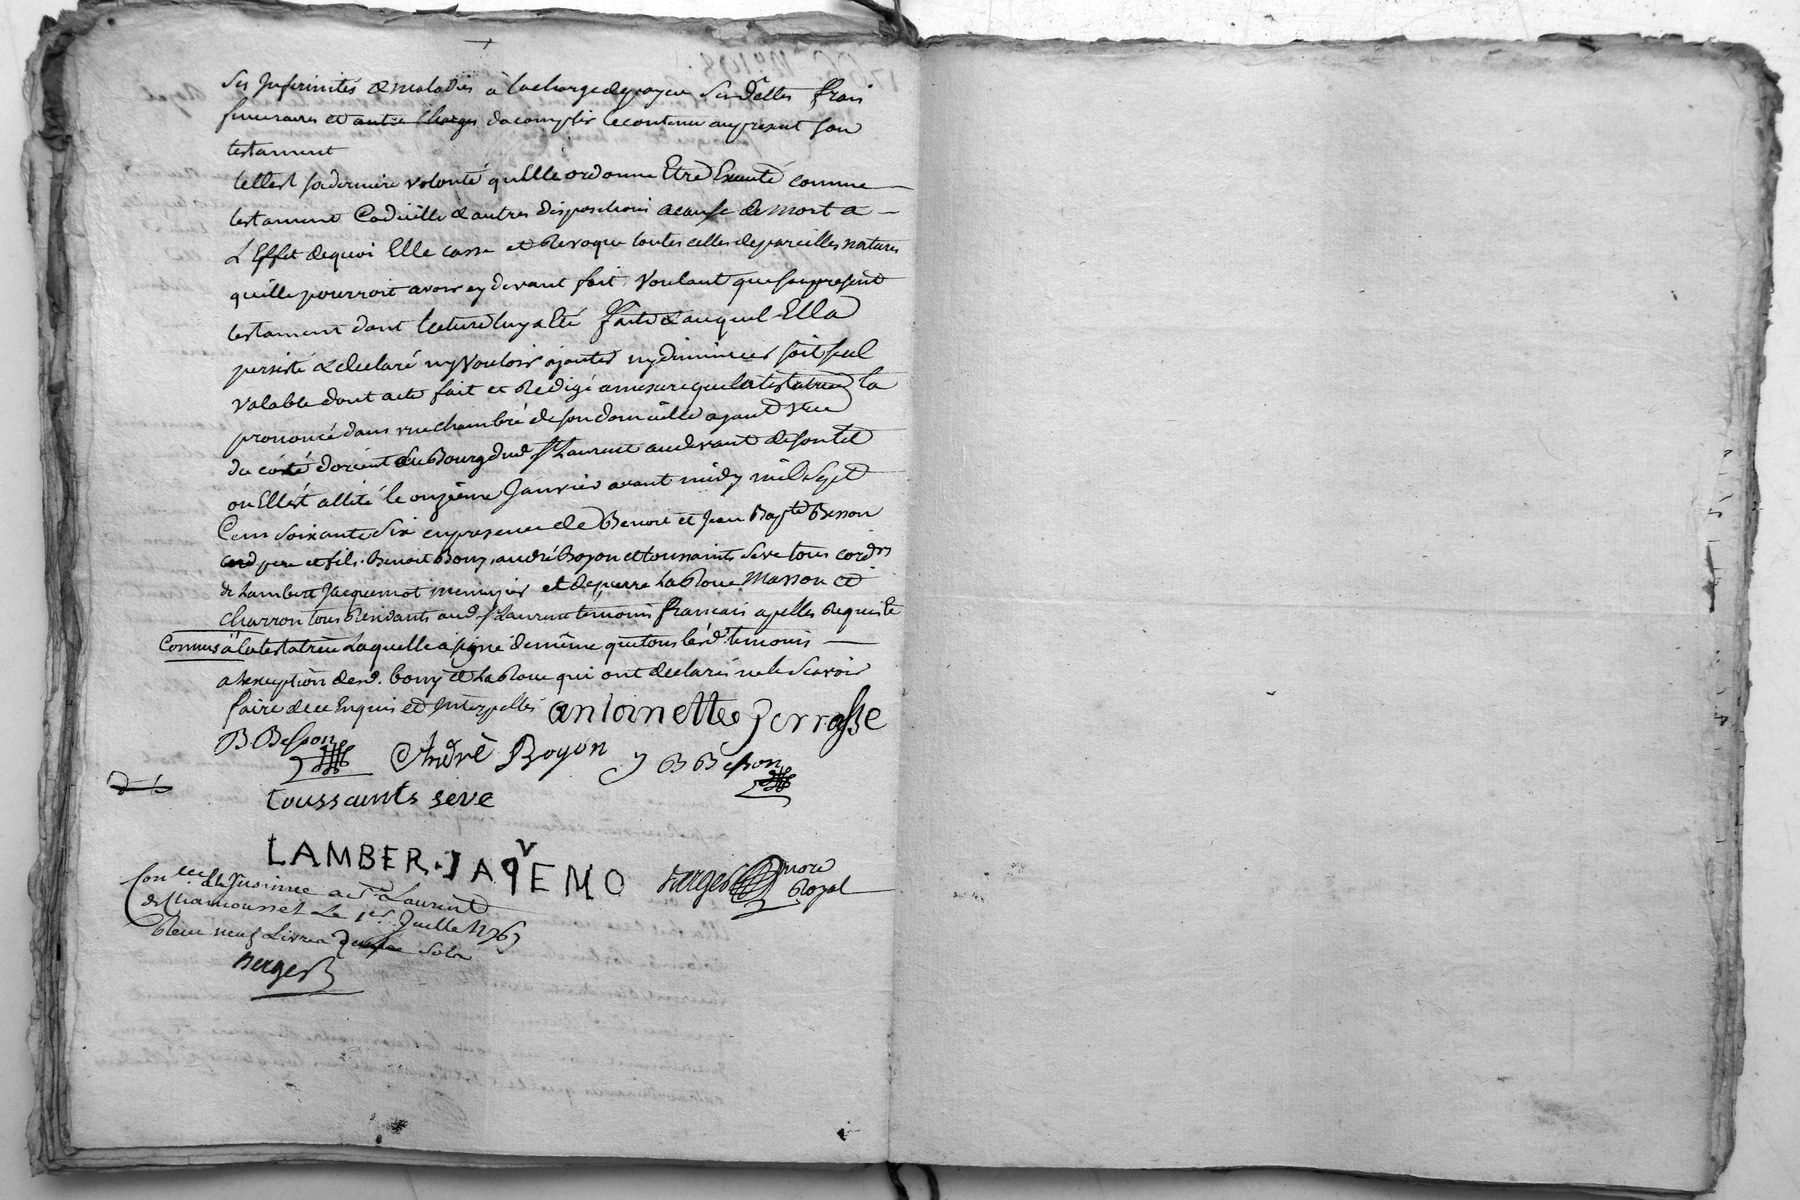 ses Infirmités & maladies à la charge de payer ses dettes frais
funeraires et autre charges dacomplir le contenu au present son
testament
telle est sa derniere volonté qu'Elle ordonne Etre Executé comme
testament Codicille & autres dispositions acause de mort a
L'Effet dequoi Elle casse et Revoque toutes celles depareilles natures
quelle pourroit avoir cy devant fait. Voulant que son present
testament dont lecture luy a Eté faite & auquel Ella
persisté & declaré ny Vouloir ajouter ny diminuer soit seul
Valable dont acte fait et Redigé amesure que la testatrice la
prononcé dans une chambre de son domicille ayant veue
du coté dorient au Bourg dud St Laurent au devant de son lit
ou Elle est allité le onzieme Janvier avant midy mil Sept
Cent Soixante Six en presence de Benoit et Jean Bapte Besson
pere et fils. Benoit Bony, andré Boyon et toussaints Seve tous cordrs
de Lambert Jacquemot menuizier et de pierre La Roue Masson et
charron tous Residants aud St Laurent temoins francais apelles Requis &
Connus à la testatrice Laquelle a signé de même que tous lesd. temoins
a lexception desd. bony et La Roue qui ont declarés ne le Scavoir
faire de ce Enquis et Interpellés antoinette Terrasse
B Besson André Boyon J B Besson
toussaints seve
LAMBER. JAQVEMO Berger nore Royal
Con lle & Insinué a St Laurent
de Chamousset Le 1er Juillet 1767
Recu neuf Livres Sols
Berger